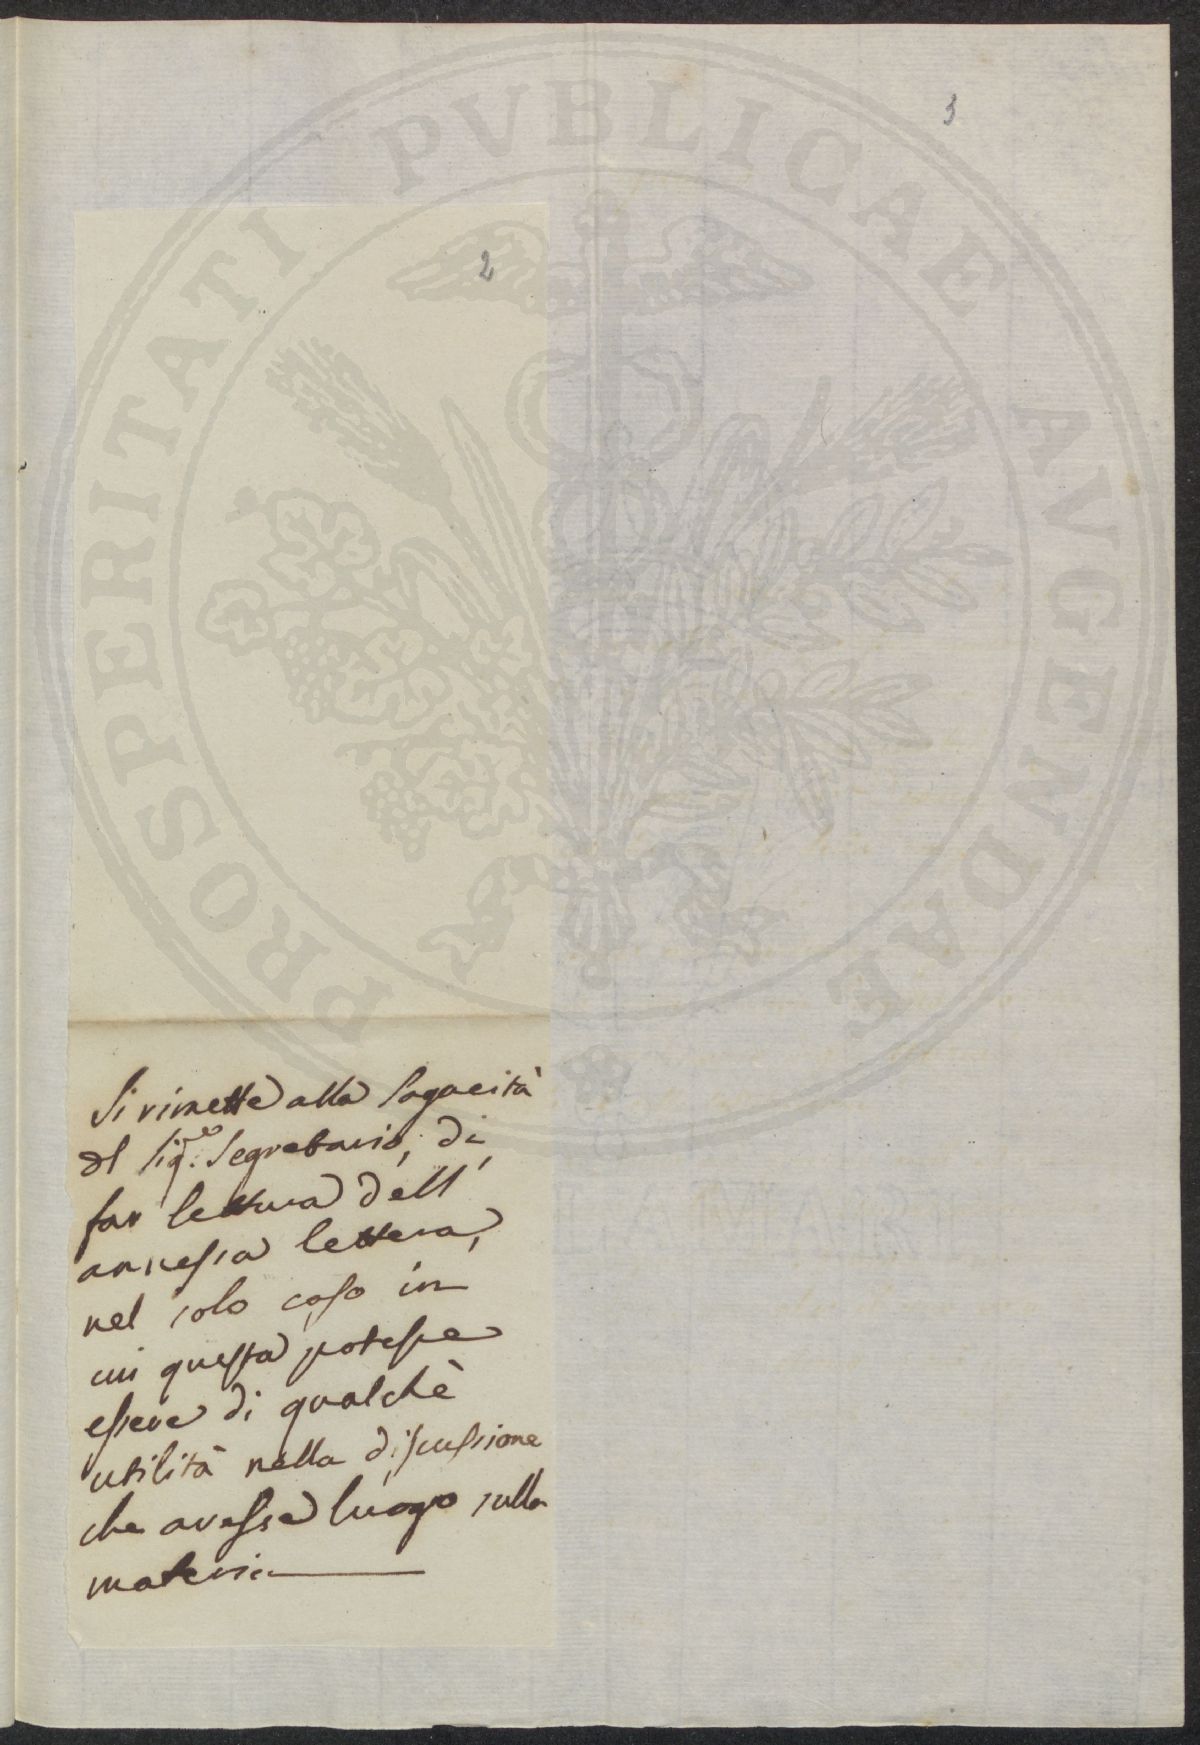 3
2
Si rimette alla Sagacità
del Sig.re Segretario, di
far lettura dell'
annessa lettera,
nel solo caso in
cui questa potesse
essere di qualchè
utilità nella discussione
che avesse luogo sulla
materia
PROSPERITATI PUBLICAE AVGENDAE